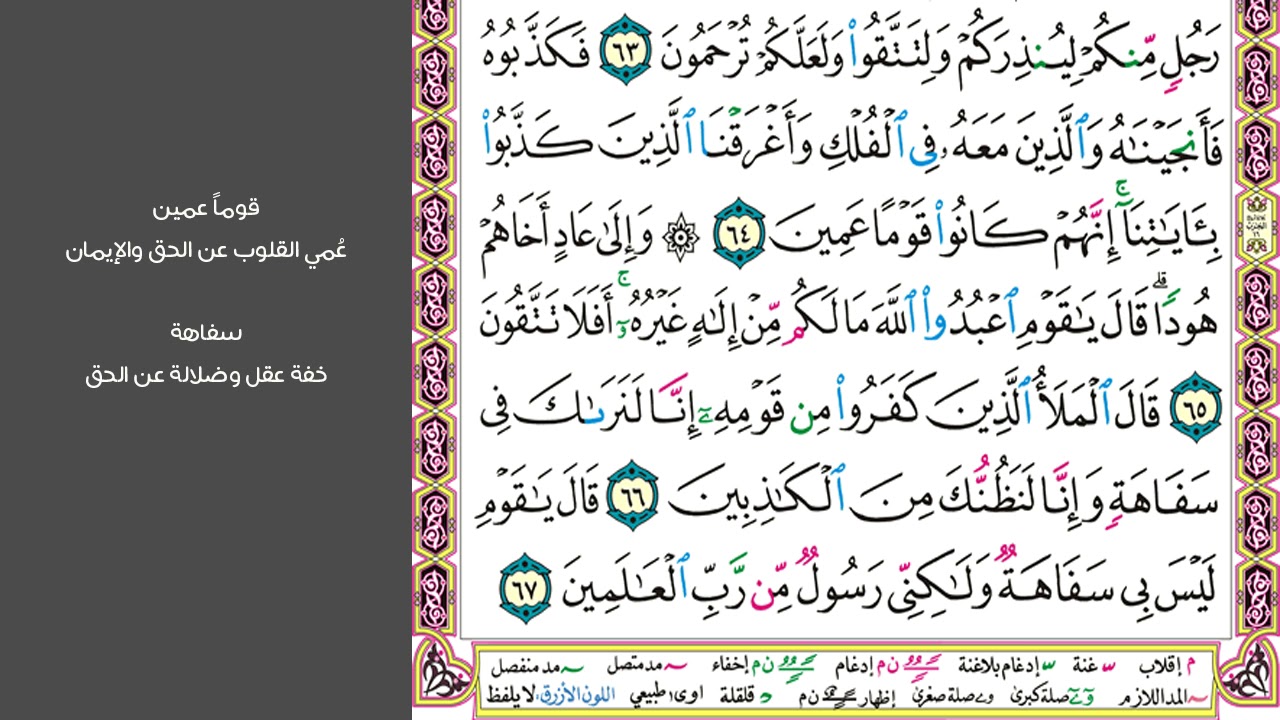 قوماً عمين
عُمي القلوب عن الحق والإيمان
سفاهة
خفة عقل وضلالة عن الحق
رَجُلٍ مِّنكُمْ لِيُنذِرَكُمْ وَلِتَتَّقُوا۟ وَلَعَلَّكُمْ تُرْحَمُونَ ٦٣ فَكَذَّبُوهُ
فَأَنجَيْنَـٰهُ وَٱلَّذِينَ مَعَهُۥ فِى ٱلْفُلْكِ وَأَغْرَقْنَا ٱلَّذِينَ كَذَّبُوا۟
بِـَٔايَـٰتِنَآ ۚ إِنَّهُمْ كَانُوا۟ قَوْمًا عَمِينَ ٦٤ ۞ وَإِلَىٰ عَادٍ أَخَاهُمْ
هُودًا ۗ قَالَ يَـٰقَوْمِ ٱعْبُدُوا۟ ٱللَّهَ مَا لَكُم مِّنْ إِلَـٰهٍ غَيْرُهُۥٓ ۚ أَفَلَا تَتَّقُونَ
٦٥ قَالَ ٱلْمَلَأُ ٱلَّذِينَ كَفَرُوا۟ مِن قَوْمِهِۦٓ إِنَّا لَنَرَىٰكَ فِى
سَفَاهَةٍ وَإِنَّا لَنَظُنُّكَ مِنَ ٱلْكَـٰذِبِينَ ٦٦ قَالَ يَـٰقَوْمِ
لَيْسَ بِى سَفَاهَةٌ وَلَـٰكِنِّى رَسُولٌ مِّن رَّبِّ ٱلْعَـٰلَمِينَ ٦٧
م إقلاب غنة إدغام بلاغنة ن م إدغام ن م إخفاء مد متصل مد منفصل
المد اللازم صلة كبرى صلة صغرى إظهار ن م قلقلة اوى طبيعي اللون الأزرق: لا يلفظ